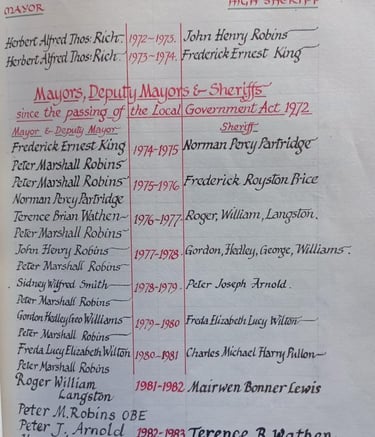 MAYOR HIGH SHERIFF
Herbert Alfred Thos: Rich. 1972-1973. John Henry Robins
Herbert Alfred Thos: Rich. 1973-1974. Frederick Ernest King
Mayors, Deputy Mayors & Sheriffs
since the passing of the Local Government Act 1972
Mayor & Deputy Mayor Sheriff
Frederick Ernest King 1974-1975 Norman Percy Partridge
Peter Marshall Robins
Peter Marshall Robins 1975-1976 Frederick Royston Price
Norman Percy Partridge
Terence Brian Wathen 1976-1977 Roger, William, Langston.
Peter Marshall Robins
John Henry Robins 1977-1978 Gordon, Hedley, George, Williams.
Peter Marshall Robins
Sidney Wilfred Smith 1978-1979 Peter Joseph Arnold
Peter Marshall Robins
Gordon Hedley Geo Williams 1979-1980 Freda Elizabeth Lucy Wilton
Peter Marshall Robins
Freda Lucy Elizabeth Wilton 1980-1981 Charles Michael Harry Pullon
Peter Marshall Robins
Roger William 1981-1982 Mairwen Bonner Lewis
Langston
Peter M. Robins OBE
Peter J. Arnold 1982-1983 Terence B. Wathen